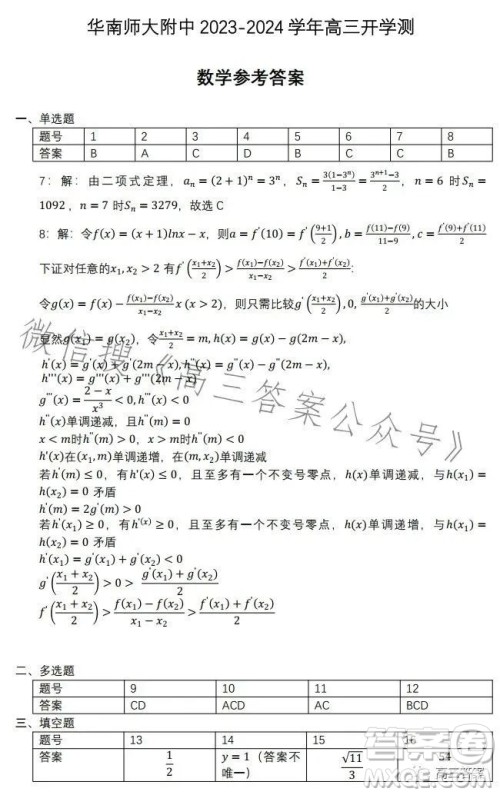 华南师大附中 2023-2024 学年高三开学测
数学参考答案
一、单选题
题号 1 2 3 4 5 6 7 8
答案 B A C D B C C B
7：解：由二项式定理，aₙ = (2 + 1)ⁿ = 3ⁿ，Sₙ = 3(1−3ⁿ)/(1−3) = (3ⁿ⁺¹−3)/2，n = 6 时Sₙ =
1092，n = 7 时Sₙ = 3279，故选 C
8：解：令f(x) = (x + 1)lnx − x，则a = f'(10) = f'((9+11)/2), b = (f(11)−f(9))/(11−9), c = (f'(9)+f'(11))/2
下证对任意的x₁, x₂ > 2 有f'((x₁+x₂)/2) > (f(x₁)−f(x₂))/(x₁−x₂) > (f'(x₁)+f'(x₂))/2:
令g(x) = f(x) − (f(x₁)−f(x₂))/(x₁−x₂) x (x > 2)，则只需比较g'((x₁+x₂)/2), 0, (g'(x₁)+g'(x₂))/2的大小
显然g(x₁) = g(x₂)，令(x₁+x₂)/2 = m, h(x) = g(x) − g(2m − x),
h'(x) = g'(x) + g'(2m − x), h''(x) = g''(x) − g''(2m − x),
h'''(x) = g'''(x) + g'''(2m − x)
g'''(x) = (2 − x)/x³ < 0, h'''(x) < 0
h''(x)单调递减，且h''(m) = 0
x < m时h''(m) > 0，x > m时h''(m) < 0
h'(x)在(x₁, m)单调递增，在(m, x₂)单调递减
若h'(m) ≤ 0，有h'(x) ≤ 0，且至多有一个不变号零点，h(x)单调递减，与h(x₁) =
h(x₂) = 0 矛盾
h'(m) = 2g'(m) > 0
若h'(x₁) ≥ 0，有h'(x) ≥ 0，且至多有一个不变号零点，h(x)单调递增，与h(x₁) =
h(x₂) = 0 矛盾
h'(x₁) = g'(x₁) + g'(x₂) < 0
g'((x₁ + x₂)/2) > 0 > (g'(x₁) + g'(x₂))/2
f'((x₁ + x₂)/2) > (f(x₁) − f(x₂))/(x₁ − x₂) > (f'(x₁) + f'(x₂))/2
微信搜《高三答案公众号》
二、多选题
题号 9 10 11 12
答案 CD ACD AC BCD
三、填空题
题号 13 14 15 16
答案 1/2 y = 1（答案不唯一） √11/3 54
答案圈
高三答案